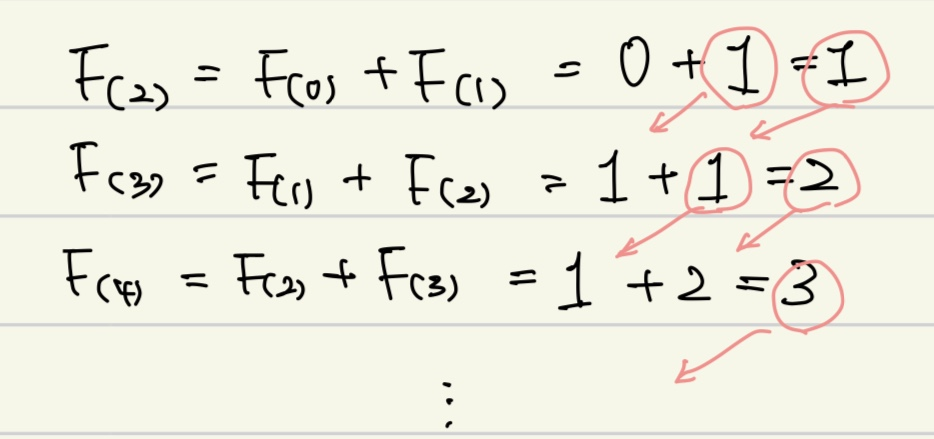 F(2) = F(0) + F(1) = 0 + 1 = 1
F(3) = F(1) + F(2) = 1 + 1 = 2
F(4) = F(2) + F(3) = 1 + 2 = 3
⋮